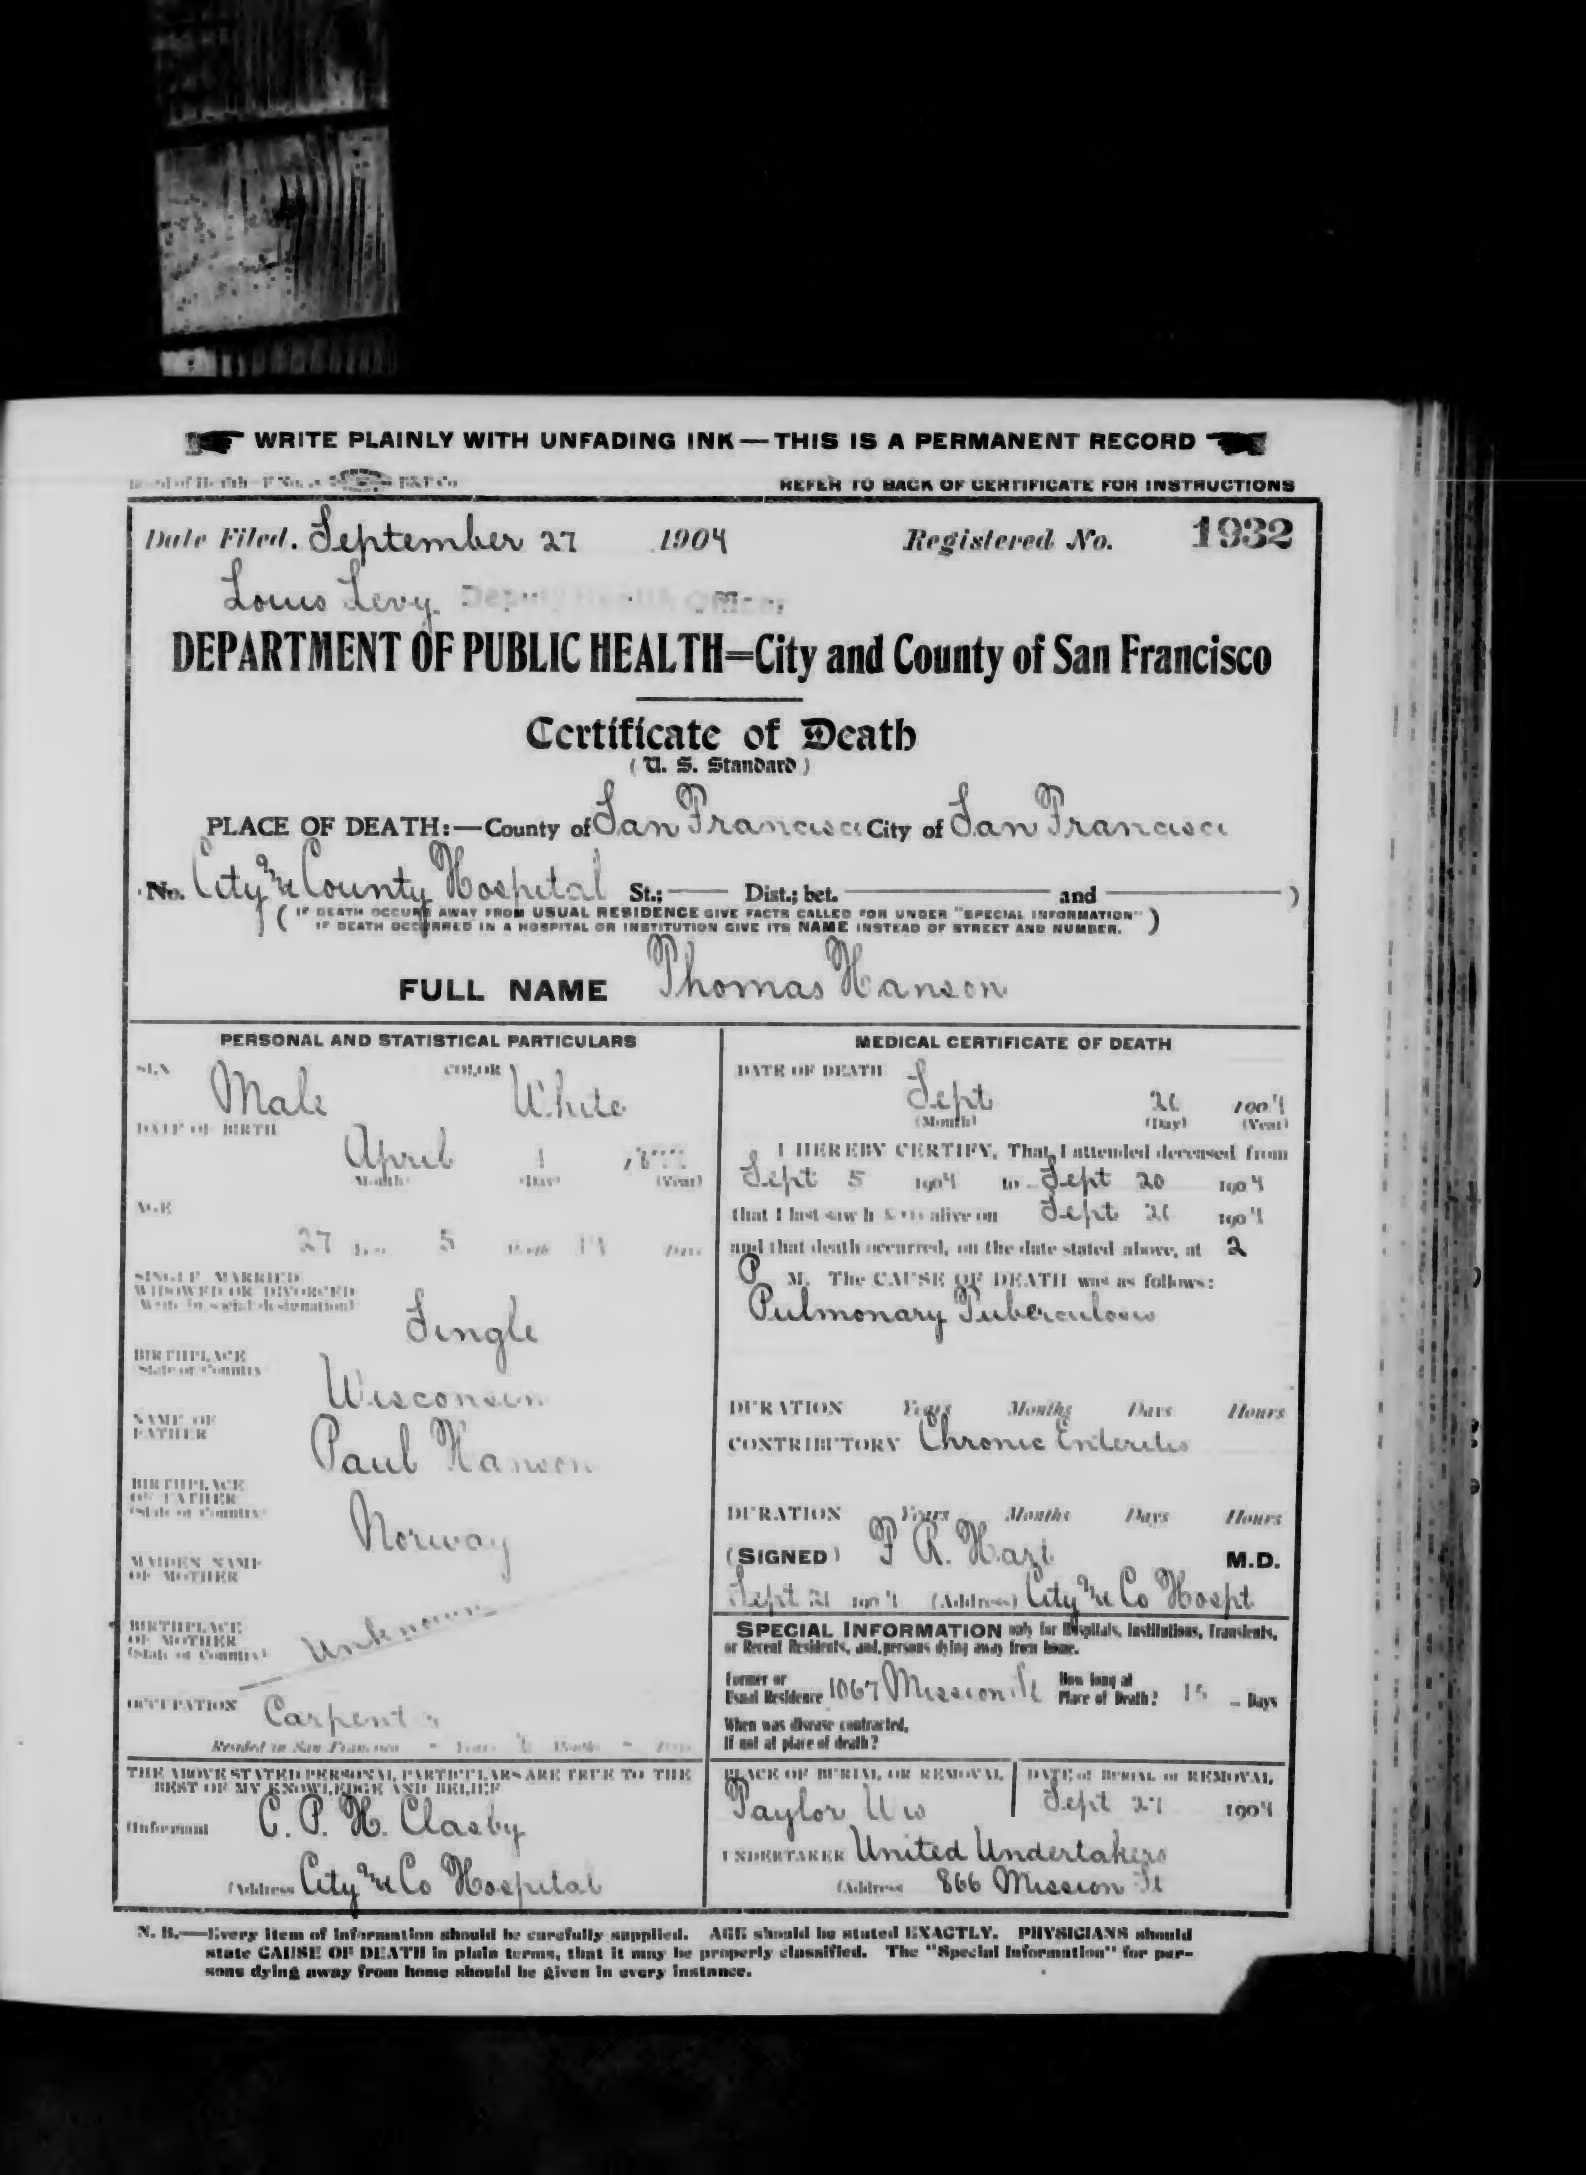 WRITE PLAINLY WITH UNFADING INK — THIS IS A PERMANENT RECORD
REFER TO BACK OF CERTIFICATE FOR INSTRUCTIONS
Date Filed. September 27 1904 Registered No. 1932
Louis Levy. Deputy Health Officer
DEPARTMENT OF PUBLIC HEALTH=City and County of San Francisco
Certificate of Death
(U. S. Standard)
PLACE OF DEATH:—County of San Francisco City of San Francisco
No. City and County Hospital St.; Dist.; bet. and )
( IF DEATH OCCURS AWAY FROM USUAL RESIDENCE GIVE FACTS CALLED FOR UNDER "SPECIAL INFORMATION" )
IF DEATH OCCURRED IN A HOSPITAL OR INSTITUTION GIVE ITS NAME INSTEAD OF STREET AND NUMBER.
FULL NAME Thomas Hanson
PERSONAL AND STATISTICAL PARTICULARS
SEX Male COLOR White
DATE OF BIRTH
April 1
(Month) (Day) (Year)
AGE
27 5
SINGLE MARRIED
WIDOWED OR DIVORCED
(Write in social designation)
Single
BIRTHPLACE
(State or Country)
Wisconsin
NAME OF
FATHER
Paul Hanson
BIRTHPLACE
OF FATHER
(State or Country)
Norway
MAIDEN NAME
OF MOTHER
BIRTHPLACE
OF MOTHER
(State or Country)
Unknown
OCCUPATION Carpenter
Resided in San Francisco Years Months Days
THE ABOVE STATED PERSONAL PARTICULARS ARE TRUE TO THE
BEST OF MY KNOWLEDGE AND BELIEF
(Informant C. P. H. Clasby
(Address City and Co Hospital
MEDICAL CERTIFICATE OF DEATH
DATE OF DEATH
Sept 1904
(Month) (Day) (Year)
I HEREBY CERTIFY, That I attended deceased from
Sept 5 1904 to Sept 20 1904
that I last saw h alive on Sept 1904
and that death occurred, on the date stated above, at 2
P M. The CAUSE OF DEATH was as follows:
Pulmonary Tuberculosis
DURATION Years Months Days Hours
CONTRIBUTORY Chronic Enteritis
DURATION Years Months Days Hours
(SIGNED) F. R. M.D.
Sept 21 1904 (Address) City and Co Hospt
SPECIAL INFORMATION only for Hospitals, Institutions, Transients,
or Recent Residents, and persons dying away from home.
Former or
Usual Residence 1067 Mission St
How long at
Place of Death? 15 Days
When was disease contracted,
If not at place of death?
PLACE OF BURIAL OR REMOVAL
Taylor Wis
DATE of BURIAL or REMOVAL
Sept 27 1904
UNDERTAKER United Undertakers
(Address 866 Mission St
N. B.—Every item of information should be carefully supplied. AGE should be stated EXACTLY. PHYSICIANS should
state CAUSE OF DEATH in plain terms, that it may be properly classified. The "Special Information" for per-
sons dying away from home should be given in every instance.